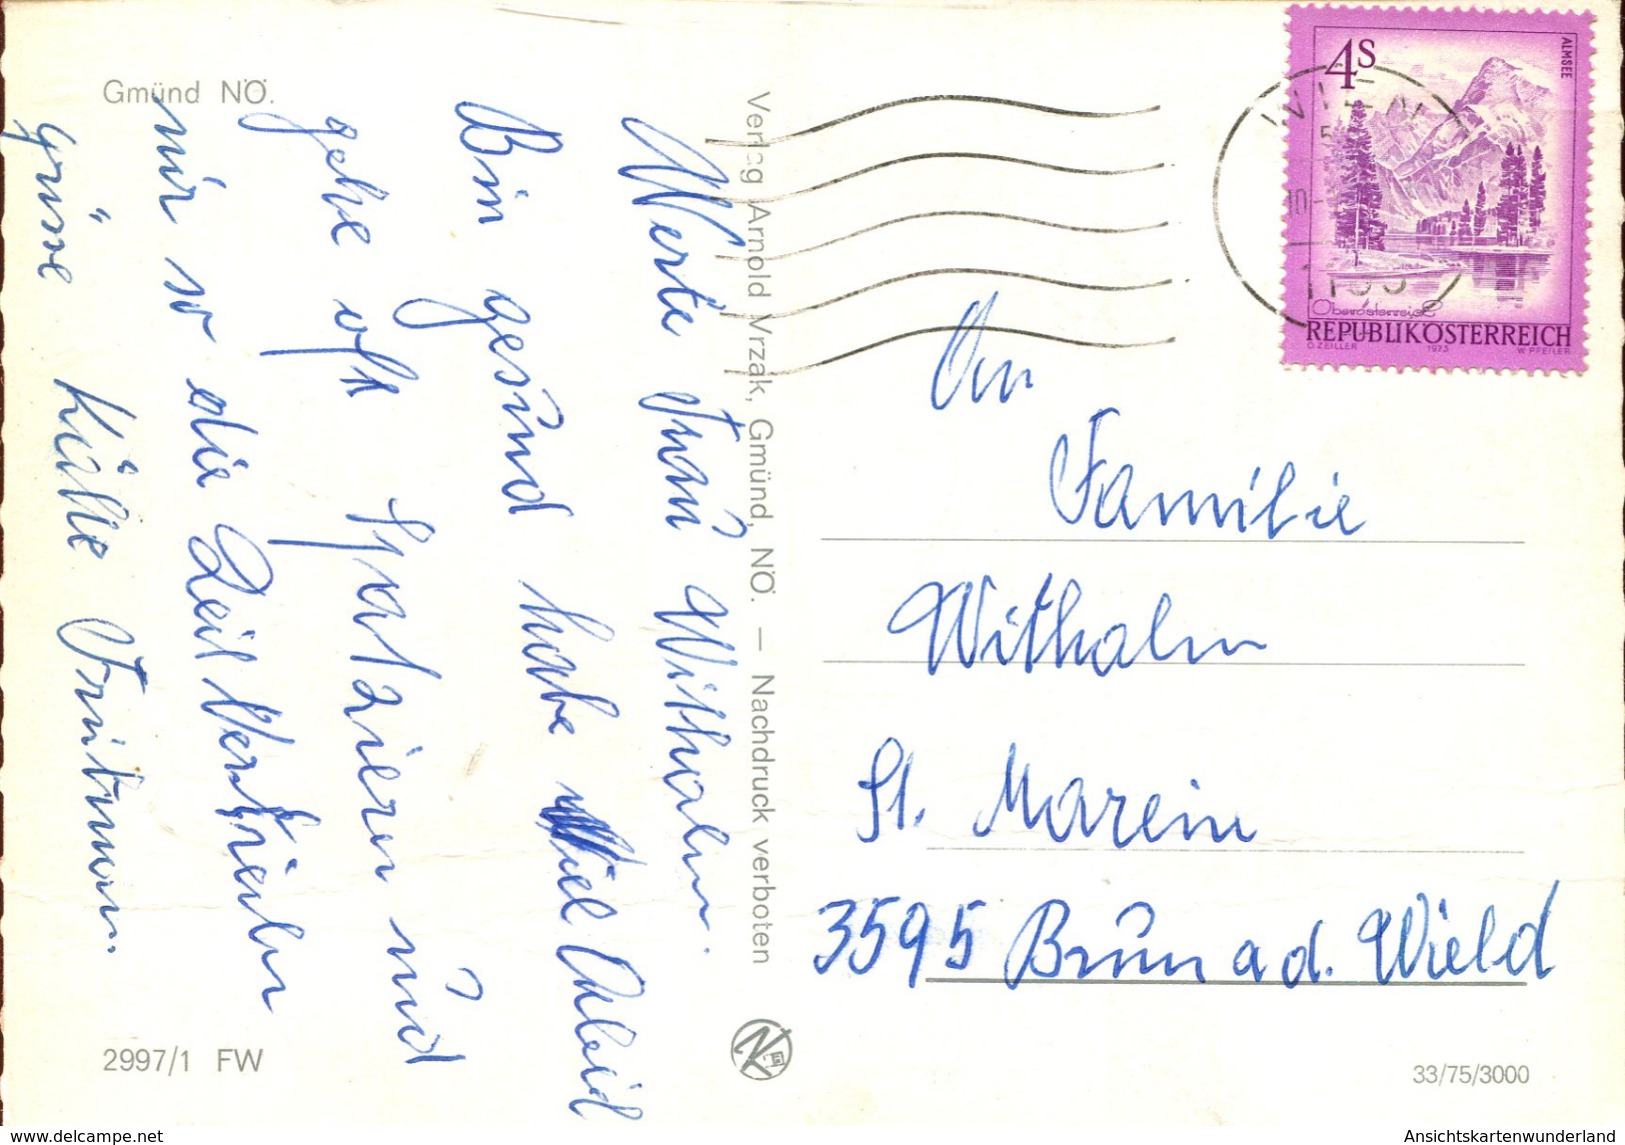 Gmünd NÖ.
Werte Frau Withalm.
Bin gesund habe viel Arbeid
gehe oft Spatzieren und
mir so die Zeit Vertrieben
grüsse
Verlag Arnold Vrzak, Gmünd, NÖ. — Nachdruck verboten
2997/1 FW
33/75/3000
4S
ALMSEE
Oberösterreich
REPUBLIK ÖSTERREICH
O. ZEILLER 1973 W. PFEILER
WIEN
An
Familie
Withalm
St. Marein
3595 Brun a d. Wield
delcampe.net
Ansichtskartenwunderland